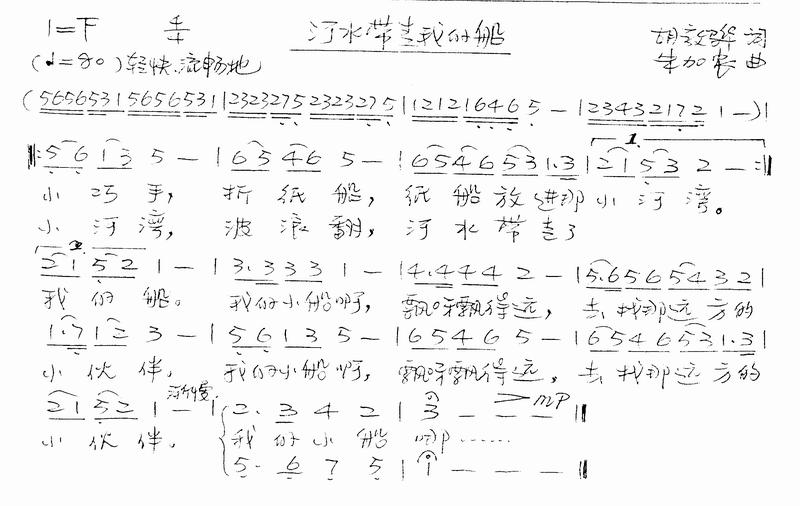 河水带走我的船
1=F 4/4
(♩=80)轻快、流畅地
词
牛加农 曲
(5656531 5656531|2323275 2323275|12121646 5 -|23432172 1 -)|
‖:56 13 5 -|65 46 5 -|6546 531.3|1. 21 53 2 -:‖
小 巧 手, 折 纸 船, 纸 船 放进那 小 河 湾。
小 河 湾, 波 浪 翻, 河 水 带走了
2. 21 52 1 -|3.3 33 1 -|4.4 44 2 -|5.656 5432|
我 的 船。 我的小船啊, 飘呀飘得远, 去找那远方的
1.712 3 -|5613 5 -|6546 5 -|6546 531.3|
小 伙 伴, 我的小船啊, 飘呀飘得远, 去找那远方的
21 52 1 -|渐慢 2. 3 4 2|3 - - - > mp‖
小 伙 伴。 我 的 小 船 哪……
5. 6 7 5|1 - - -‖